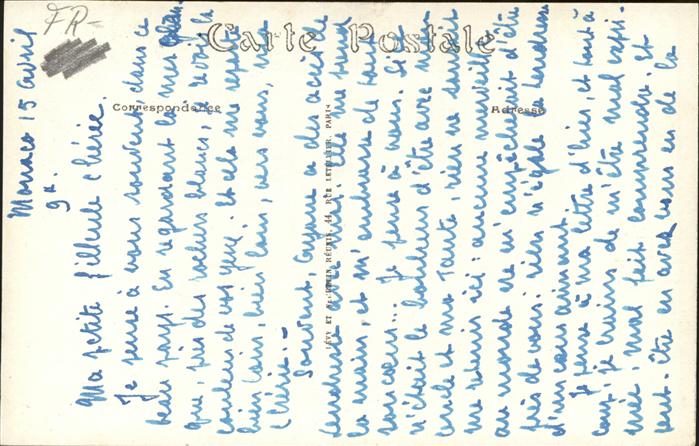 FR-
Carte Postale
Correspondance
Adresse
LÉVY ET NEURDEIN RÉUNIS, 44, RUE LETELLIER, PARIS
Monaco 15 avril
9h.
Ma petite filleule chérie.
Je pense à vous souvent dans ce
beau pays. En regardant la mer
que, près des rochers blancs, a
couleur de vos yeux. Et cela me
bien loin, bien loin, vers vous, ma
chérie. -
Souvent, a des accès de
tendresse Elle me prend
la main, et m'embrasse de tout
son coeur... Je pense à vous. Si ce
n'était le bonheur d'être avec mon
oncle et ma tante, rien ne saurait
me retenir ici: aucune merveille
au monde ne m'empêcherait d'être
près de vous: rien n'égale la tendresse
d'un coeur aimant.
Je pense à ma lettre d'hier, et tout à
coup, je crains de m'être mal expri-
mée, mal fait comprendre. Et
peut-être en avez-vous eu de la